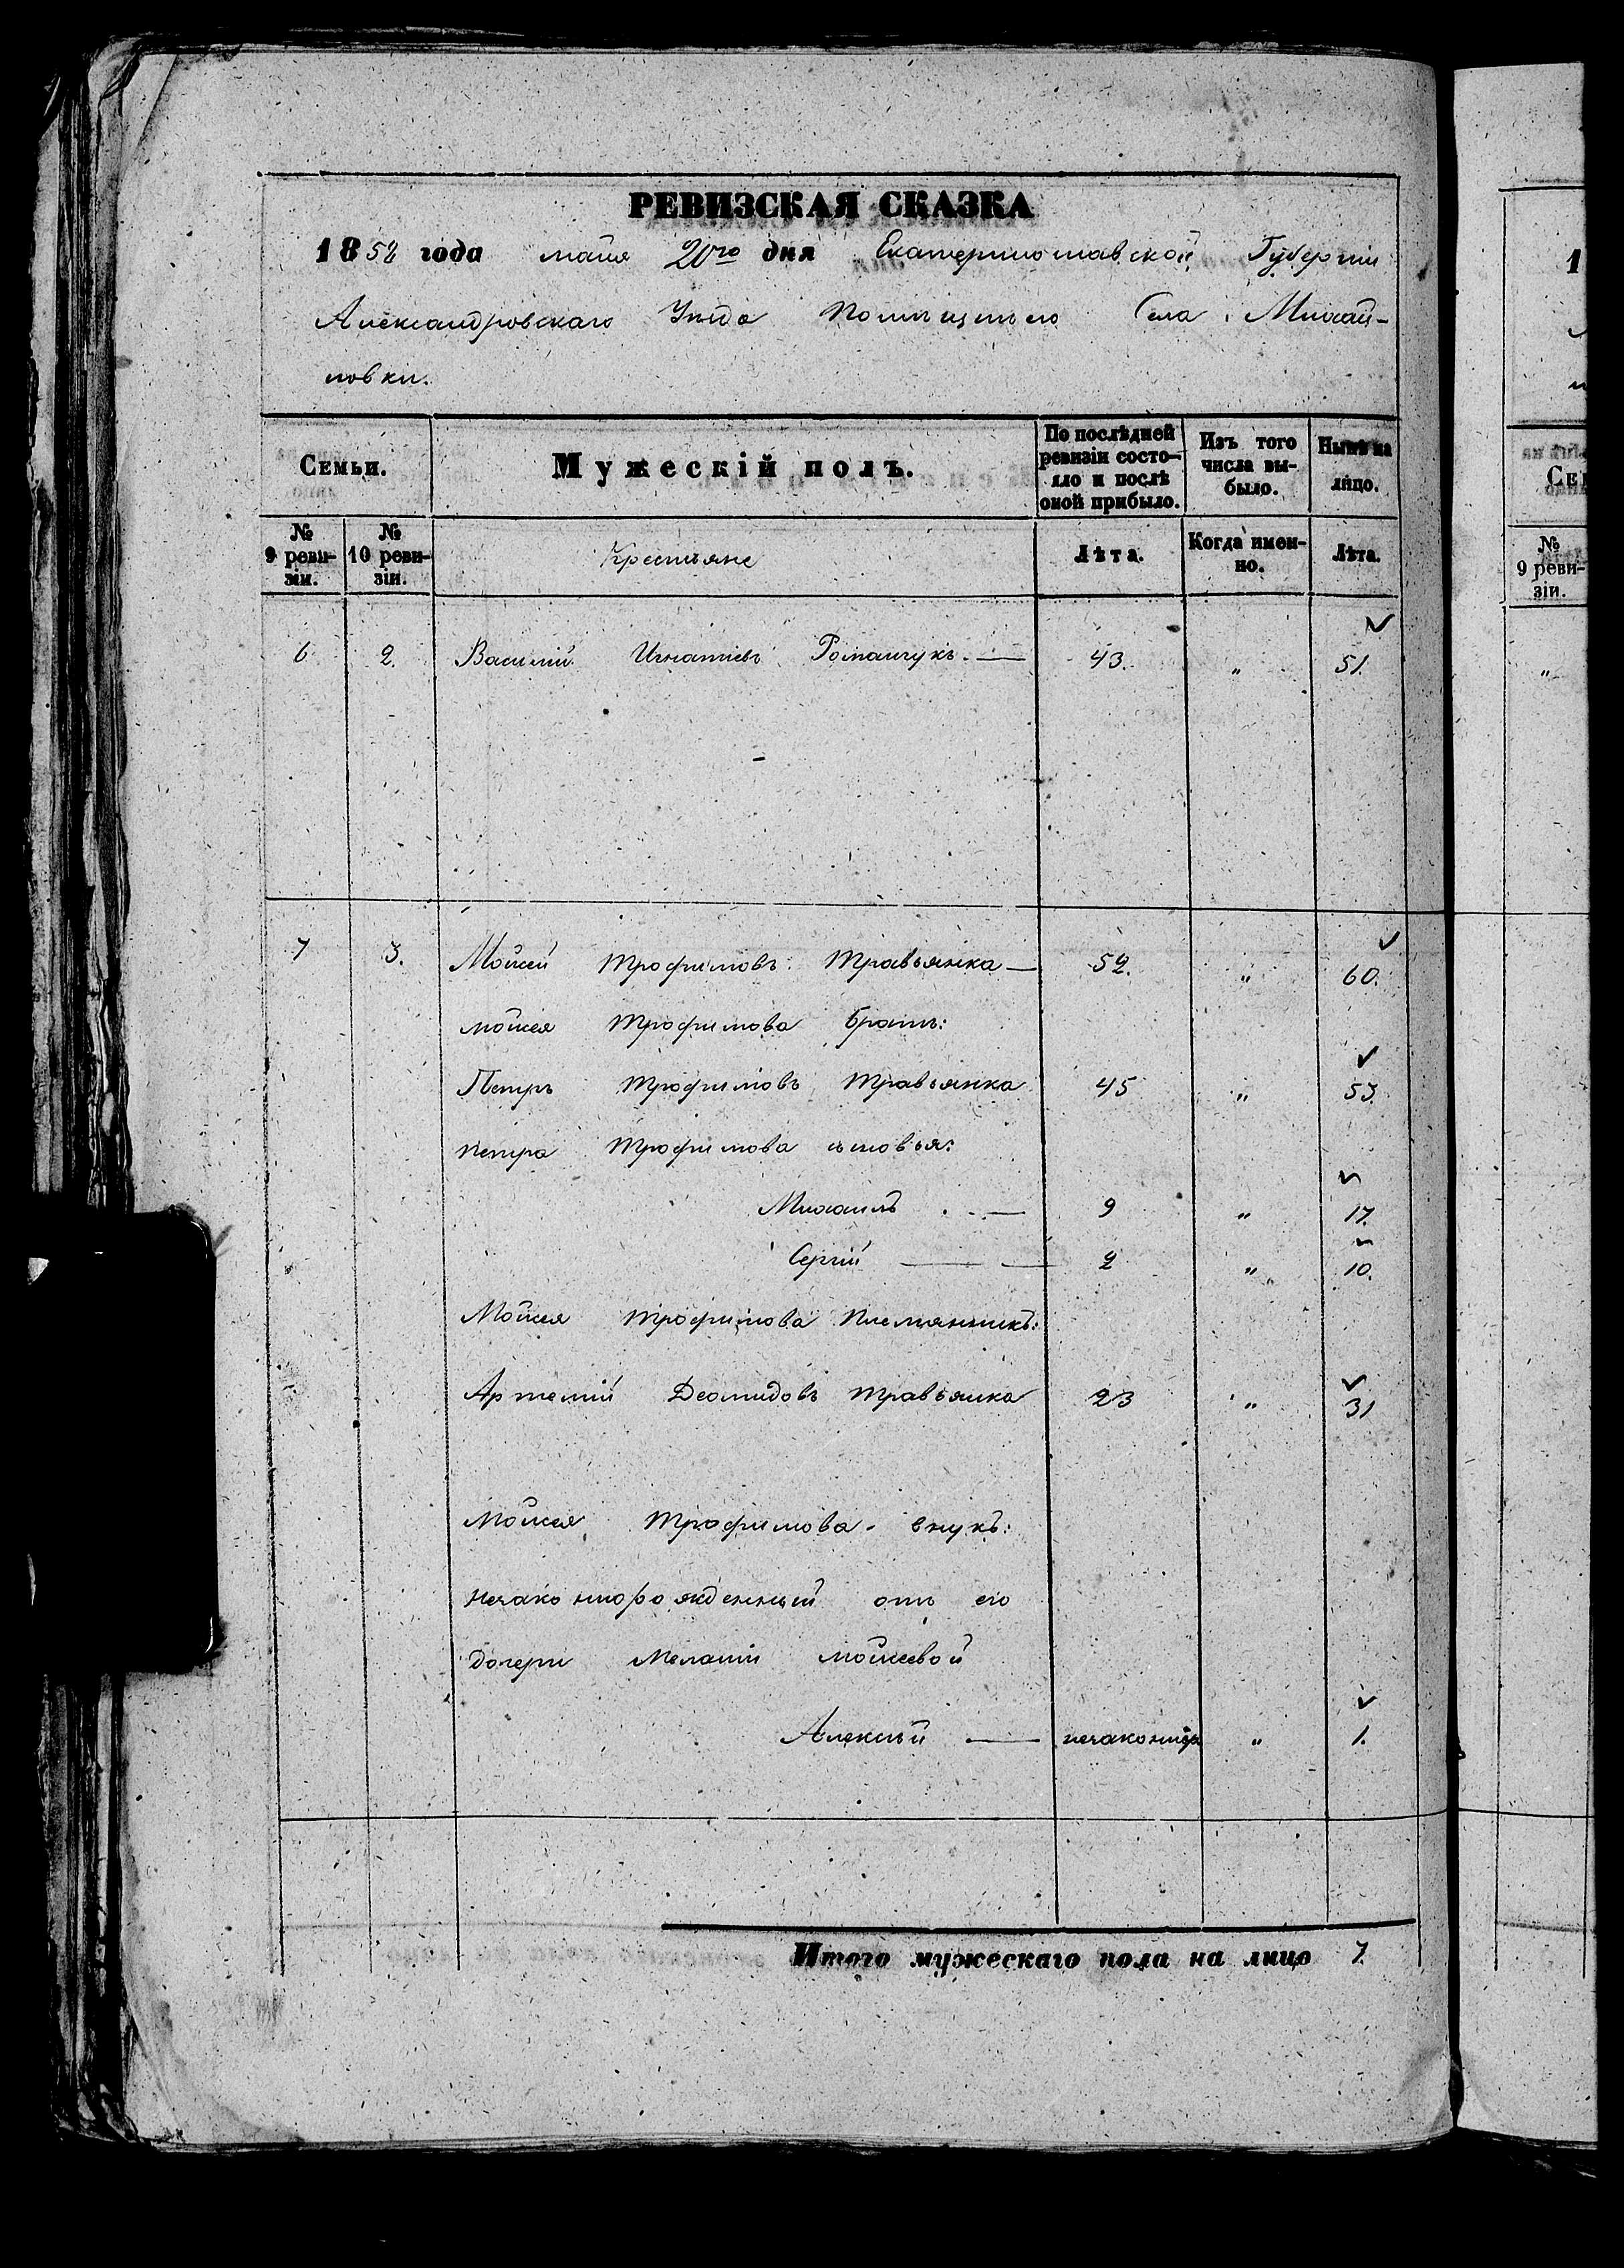 РЕВИЗСКАЯ СКАЗКА
1858 года майя 20го дня Екатеринославской Губерніи
Александровскаго Уѣзда Села Михай-
ловки.
Семьи.
Мужескій полъ.
По послѣдней ревизіи состо-
яло и послѣ оной прибыло.
Изъ того числа вы-
было.
Нынѣ на лицо.
№ 9 реви-
зіи.
№ 10 реви-
зіи.
Крестьяне
Лѣта.
Когда имен-
но.
Лѣта.
6 2. Василій Игнатіевъ Романчукъ. — 43. " 51.
7 3. Мойсей Трофимовъ Травьянка — 52. " 60.
мойсея Трофимова братъ:
Петръ Трофимовъ Травьянка 45 " 53
петра Трофимова сыновья:
Михаилъ — 9 " 17.
Сергій — 2 " 10.
Мойсея трофимова племянникъ:
Артемій Деомидовъ травьянка 23 " 31
Мойсея Трофимова внукъ:
незаконнорожденный отъ его
дочери Меланіи мойсеевой
Алексѣй — " 1.
Итого мужескаго пола на лицо 7.
1
Се
№
9 реви-
зіи.
"